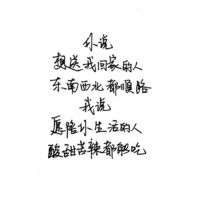 你说
想送我回家的人
东南西北都顺路
我说
愿陪你生活的人
酸甜苦辣都敢吃